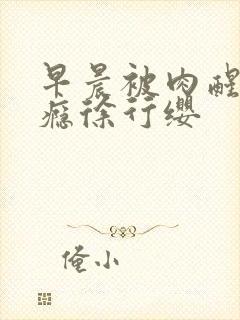 早晨被肉醒
瘾徐行缨
俺小